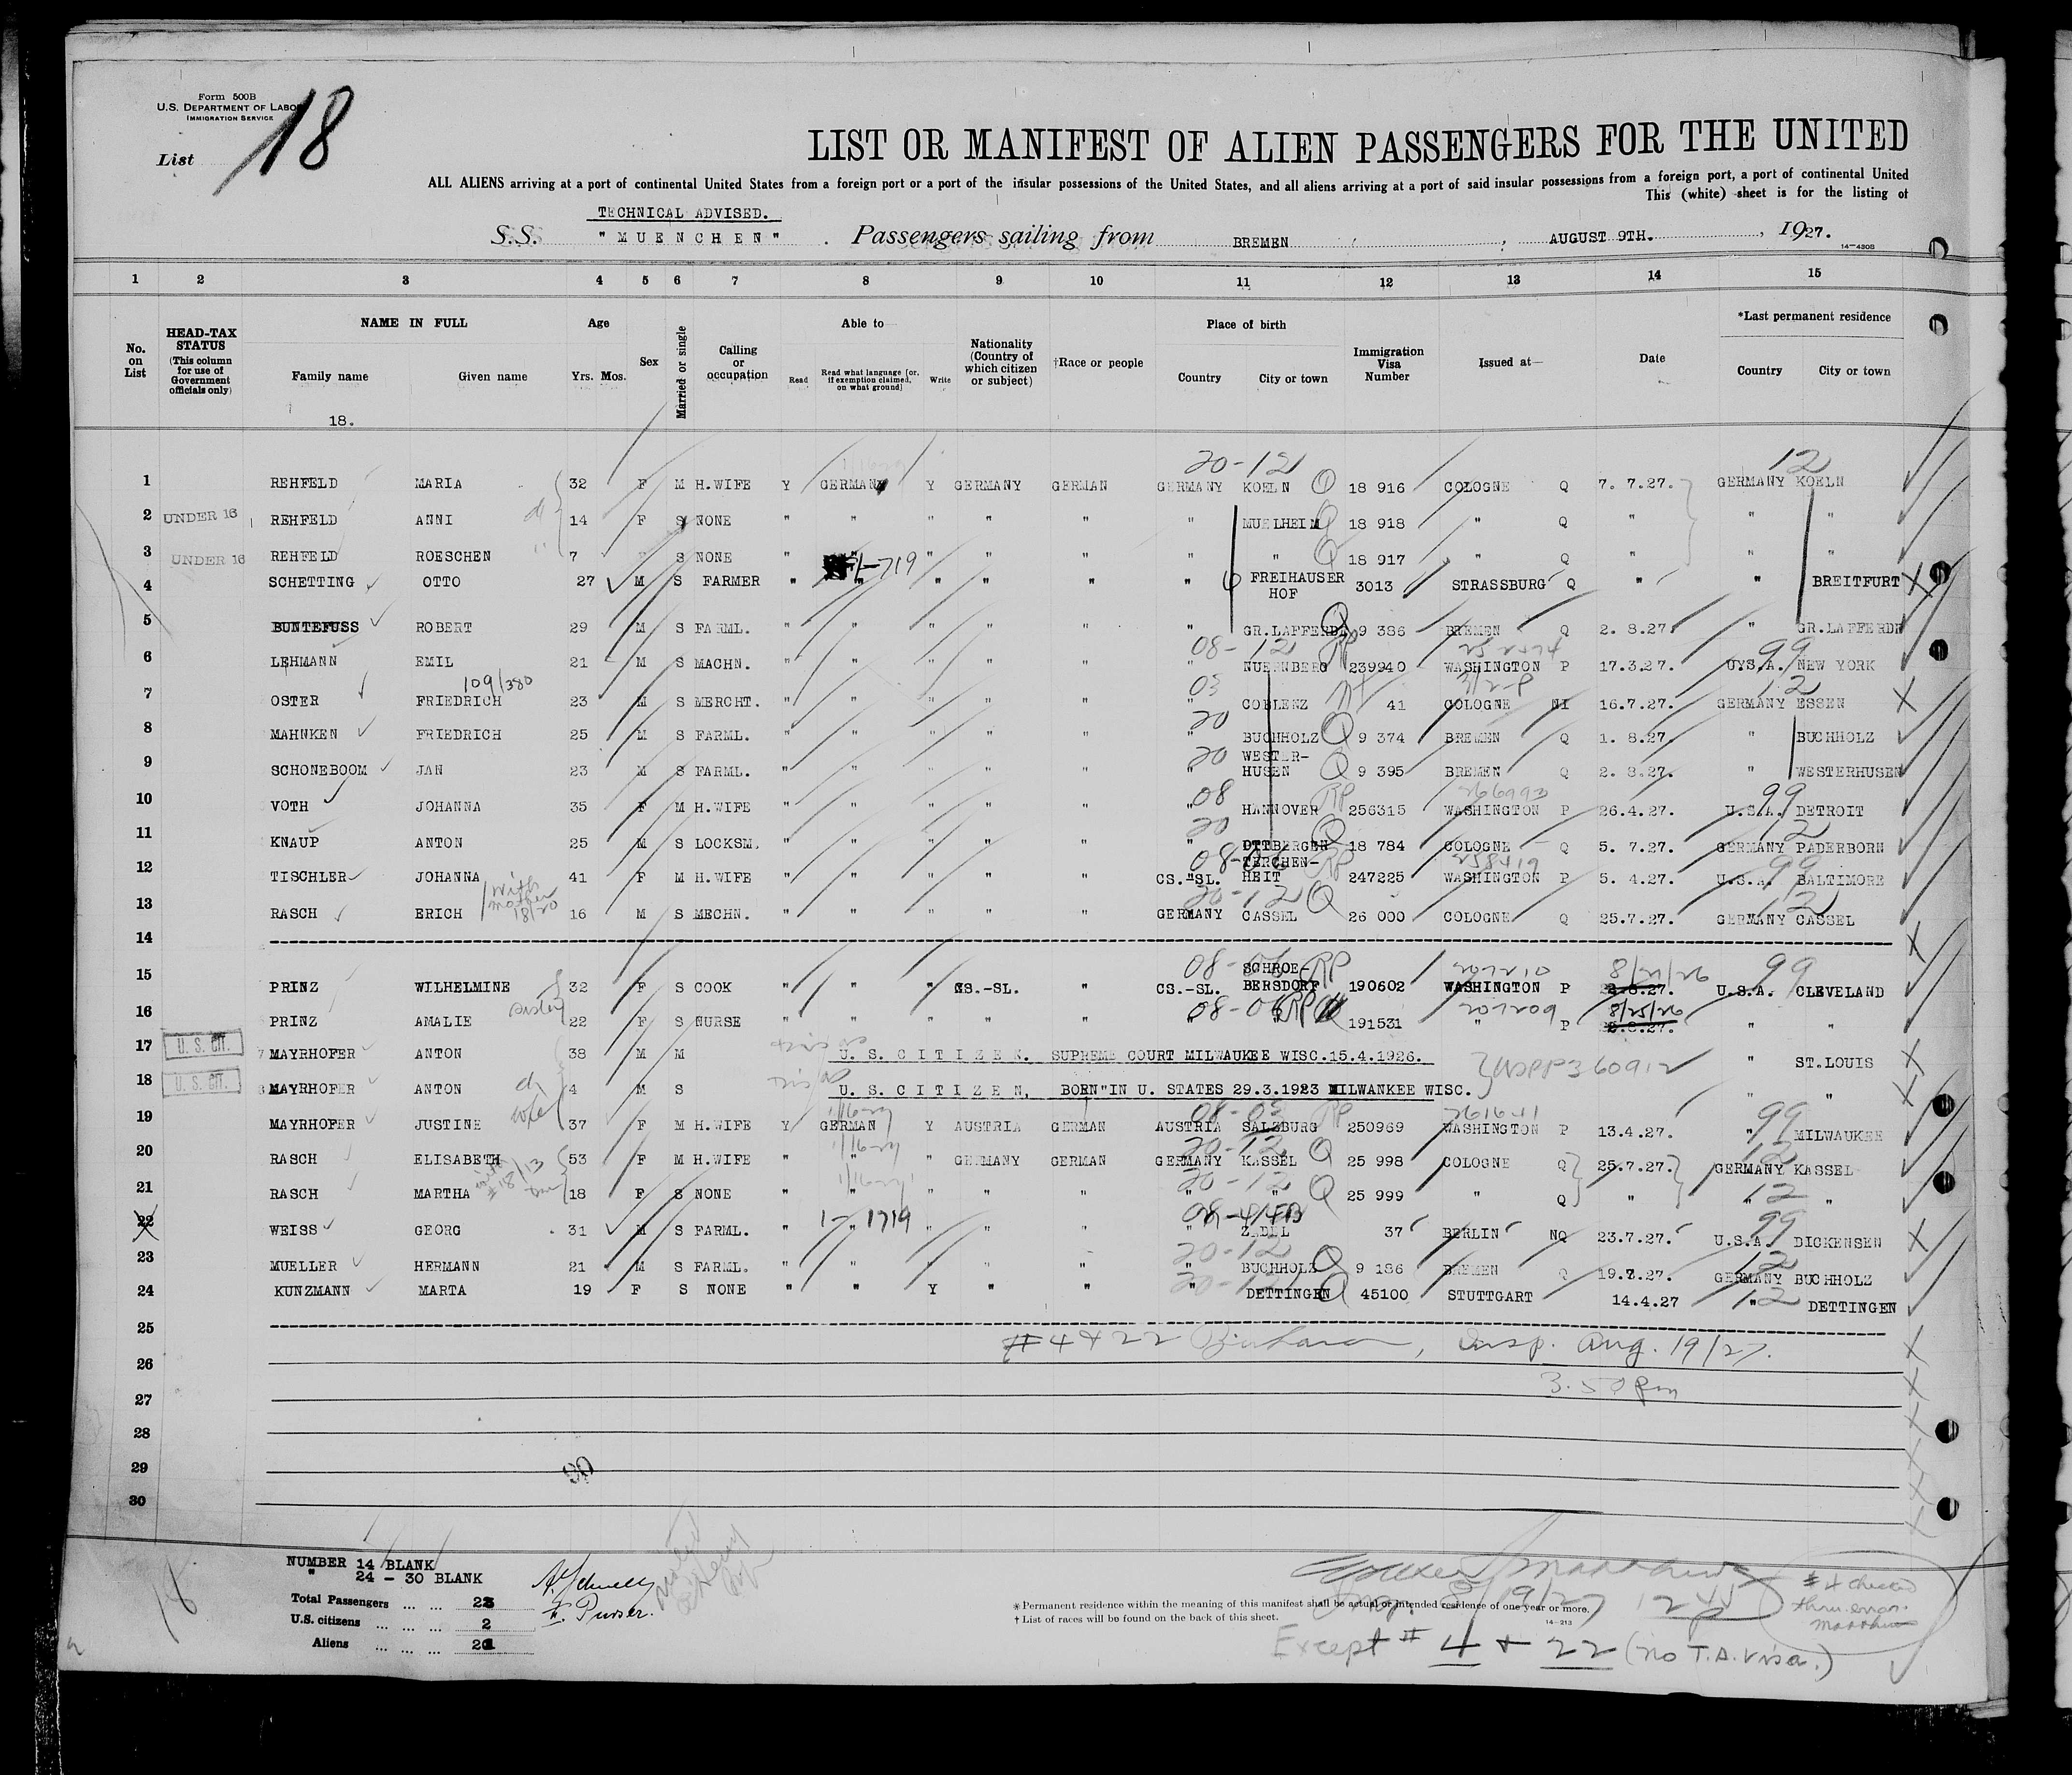 Form 500B
U.S. DEPARTMENT OF LABOR
IMMIGRATION SERVICE
List 18
LIST OR MANIFEST OF ALIEN PASSENGERS FOR THE UNITED
ALL ALIENS arriving at a port of continental United States from a foreign port or a port of the insular possessions of the United States, and all aliens arriving at a port of said insular possessions from a foreign port, a port of continental United
This (white) sheet is for the listing of
TECHNICAL ADVISED.
S.S. "MUENCHEN". Passengers sailing from BREMEN, AUGUST 9TH., 1927.
14-430B
1 2 3 4 5 6 7 8 9 10 11 12 13 14 15
No. on List
HEAD-TAX STATUS (This column for use of Government officials only)
NAME IN FULL
Family name Given name
Age
Yrs. Mos.
Sex
Married or single
Calling or occupation
Able to
Read Read what language [or, if exemption claimed, on what ground] Write
Nationality (Country of which citizen or subject)
†Race or people
Place of birth
Country City or town
Immigration Visa Number
Issued at—
Date
*Last permanent residence
Country City or town
18.
20-12 12
1 REHFELD MARIA 32 F M H.WIFE Y GERMAN Y GERMANY GERMAN GERMANY KOELN Q 18 916 COLOGNE Q 7. 7.27. GERMANY KOELN
2 UNDER 16 REHFELD ANNI 14 F S NONE " " " " " " MUELHEIM Q 18 918 " Q " " "
3 UNDER 16 REHFELD ROESCHEN 7 S NONE " " " " " " " Q 18 917 " Q " " "
4 SCHETTING OTTO 27 M S FARMER " " " " " " FREIHAUSER HOF 3013 STRASSBURG Q " " BREITFURT
5 BUNTEFUSS ROBERT 29 M S FARML. " " " " " " GR.LAFFERDE Q 9 386 BREMEN Q 2. 8.27. " GR.LAFFERDE
08-12 RP 99
6 LEHMANN EMIL 21 M S MACHN. " " " " " " NUERNBERG 239940 WASHINGTON P 17.3.27. U.S.A. NEW YORK
109/380 03 12
7 OSTER FRIEDRICH 23 M S MERCHT. " " " " " " COBLENZ 41 COLOGNE NI 16.7.27. GERMANY ESSEN
20
8 MAHNKEN FRIEDRICH 25 M S FARML. " " " " " " BUCHHOLZ Q 9 374 BREMEN Q 1. 8.27. " BUCHHOLZ
20
9 SCHONEBOOM JAN 23 M S FARML. " " " " " " WESTER-HUSEN Q 9 395 BREMEN Q 2. 8.27. " WESTERHUSEN
08 RP 99
10 VOTH JOHANNA 35 F M H.WIFE " " " " " " HANNOVER 256315 WASHINGTON P 26.4.27. U.S.A. DETROIT
20 Q 12
11 KNAUP ANTON 25 M S LOCKSM. " " " " " " 18 784 COLOGNE Q 5. 7.27. GERMANY PADERBORN
RP 258419 99
12 TISCHLER JOHANNA 41 F M H.WIFE " " " " " CS.-SL. TERCHEN-HEIT 247225 WASHINGTON P 5. 4.27. U.S.A. BALTIMORE
with mother 18/20 20-12 Q 12
13 RASCH ERICH 16 M S MECHN. " " " " " GERMANY CASSEL 26 000 COLOGNE Q 25.7.27. GERMANY CASSEL
14
RP 99
15 PRINZ WILHELMINE 32 F S COOK " " " CS.-SL. " CS.-SL. SCHROE-BERSDORF 190602 WASHINGTON P U.S.A. CLEVELAND
sister 207209 8/25/26
16 PRINZ AMALIE 22 F S NURSE " " " " " " " 191531 " P 2.8.27. " "
17 U. S. CIT. MAYRHOFER ANTON 38 M M U. S. CITIZEN. SUPREME COURT MILWAUKEE WISC.15.4.1926. " ST.LOUIS
18 U. S. CIT. MAYRHOFER ANTON 4 M S U. S. CITIZEN, BORN IN U. STATES 29.3.1923 MILWANKEE WISC. " "
wife 1/16 08-03 RP 261641 99
19 MAYRHOFER JUSTINE 37 F M H.WIFE Y GERMAN Y AUSTRIA GERMAN AUSTRIA SALZBURG 250969 WASHINGTON P 13.4.27. " MILWAUKEE
20-12 12
20 RASCH ELISABETH 53 F M H.WIFE " " " GERMANY GERMAN GERMANY KASSEL Q 25 998 COLOGNE Q 25.7.27. GERMANY KASSEL
20-12 12
21 RASCH MARTHA 18 F S NONE " " " " " " " Q 25 999 " Q " " "
99
22 WEISS GEORG 31 M S FARML. " " " " " " ZADEL 37 BERLIN NQ 23.7.27. U.S.A. DICKENSEN
20-12 12
23 MUELLER HERMANN 21 M S FARML. " " " " " " BUCHHOLZ Q 9 186 BREMEN Q 19.7.27. GERMANY BUCHHOLZ
20-12 12
24 KUNZMANN MARTA 19 F S NONE " " Y " " " DETTINGEN Q 45100 STUTTGART 14.4.27 " DETTINGEN
25
# 4 & 22 , Insp. Aug. 19/27.
26
3.50 pm
27
28
29
30
NUMBER 14 BLANK
" 24 - 30 BLANK
Total Passengers ... ... 23
U.S. citizens ... ... ... 2
Aliens ... ... ... 21
Purser.
* Permanent residence within the meaning of this manifest shall be actual or intended residence of one year or more.
† List of races will be found on the back of this sheet.
14-213
Insp. 8/19/27
Except # 4 & 22 (no T.A. visa.)
# 4 checked thru error.